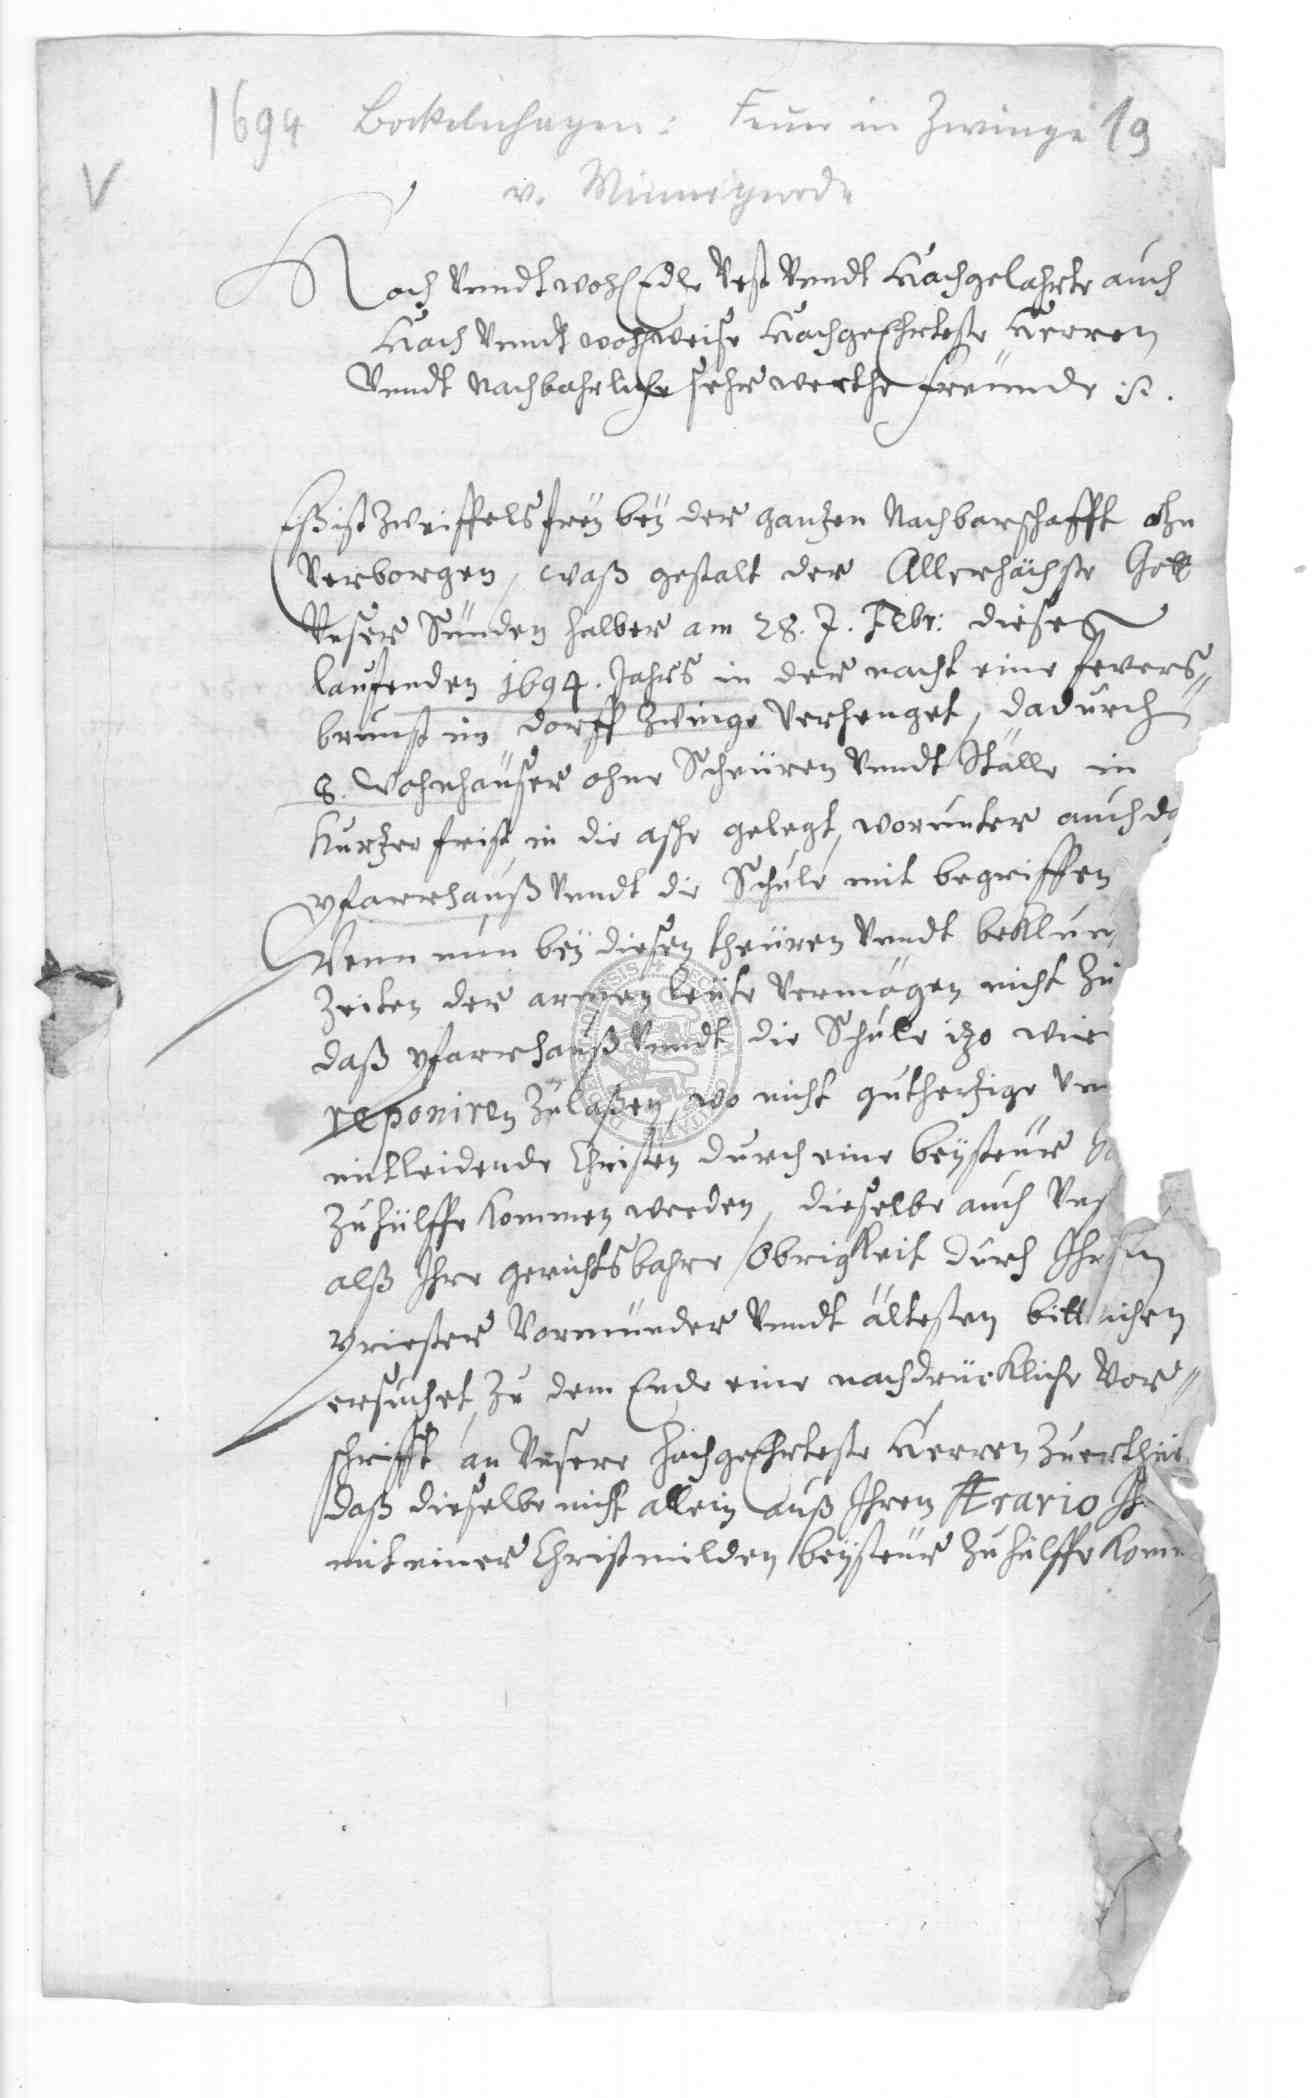 1694 Bockelnhagen: Feuer in Zwinge 19
v. Minnigerode
V
Hoch Vnndt wohl Edle Vest Vnndt Hochgelahrte auch
Hoch Vnndt wohlweise HochgeEhrteste Herren
Vnndt Nachbahrliche sehr werthe freünde
Eß ist Zweiffels freÿ beÿ der gantzen Nachbarschafft ohn
Verborgen, waß gestalt der Allerhöchste Gott
Vnser Sünden halber am 28. 7. Febr: dieses
lauffenden 1694. Jahrs in der nacht eine fevers„
brunst im dorff Zwinge Verhenget, dadurch
8. Wohnhäuser ohne Scheüren Vnndt Ställe in
Kurtzer frist, in die asche gelegt, worunter auch da
Pfarrhauß Vnndt die Schule mit begriffen
Wenn nun beÿ diesen theüren Vnndt beklem
Zeiten der armen leüte Vermögen nicht Zu
daß Pfarrhauß Vnndt die Schule itzo wie
reponiren Zulaßen, wo nicht guthertzige Vn
mitleidende Christen durch eine beÿsteur
Zuhülffe kommen werden, dieselbe auch Vns
alß Ihre gerichtsbahre Obrigkeit durch Ihren
Priester Vormünder Vnndt ältesten bittlichen
ersuchet, Zu dem Ende eine nachdrückliche Vor„
schrifft an Vnsere HochgeEhrteste Herren Zuertheil
daß dieselbe nicht allein auß Ihren Ærario Ih
mit einer Christmilden beÿsteur Zu hülffe Kom